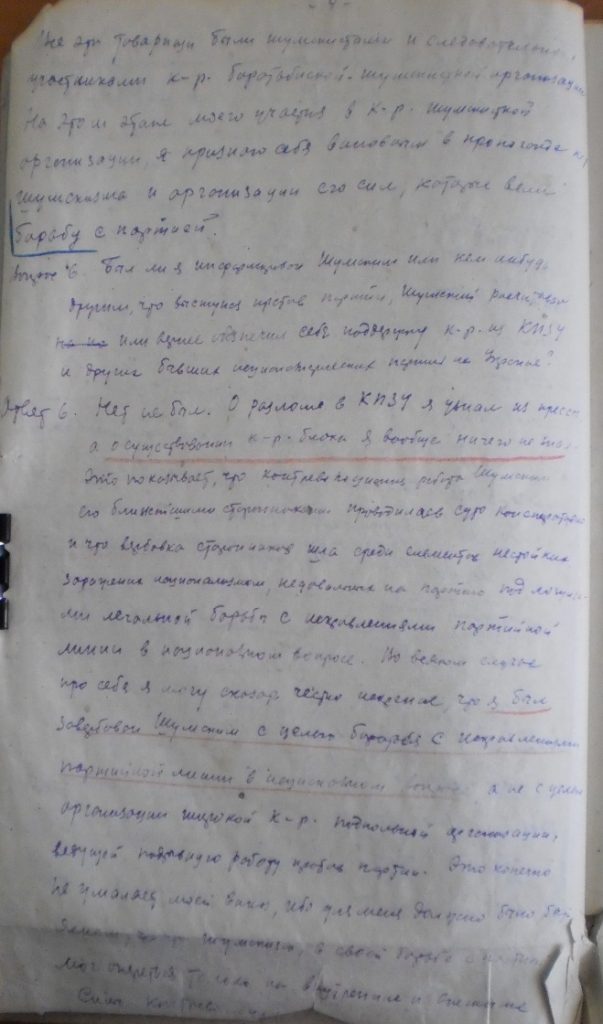 - 4 -
Все эти товарищи были шумскистами и следовательно,
участниками к-р. боротьбистской-шумскистской организации
На этом этапе моего участия в к-р. шумскистской
организации, я признаю себя виновным в пропаганде
шумскизма и организации его сил, которые вели
борьбу с партией.
Вопрос 6. Был ли я информирован Шумским или кем нибудь
другим, что выступая против партии, Шумский рассчитывал
или вернее обеспечил себе поддержку к.р. из КПЗУ
и других бывших националистических партий на Украине?
Ответ 6. Нет не был. О разломе в КПЗУ я узнал из прессы
а о существовании к-р. блока я вообще ничего не знал.
Это показывает, что контрреволюционная работа Шумским
его ближайшими сторонниками проводилась
и что вербовка сторонников шла среди элементов нестойких
зараженных национализмом, недовольных на партию под
легальной борьбы с искривлениями партийной
линии в национальном вопросе. Во всяком случае
про себя я могу сказать честно, что я был
завербован Шумским с целью бороться с искривлениями
партийной линии в национальном вопросе, а не с целью
организации широкой к-р. подпольной организации,
ведущей подрывную работу против партии. Это конечно
не умаляет моей вины, ибо для меня должно было быть
ясным, что шумскизм, в своей борьбе с
мог опереться только на внутренние и внешние
Силы